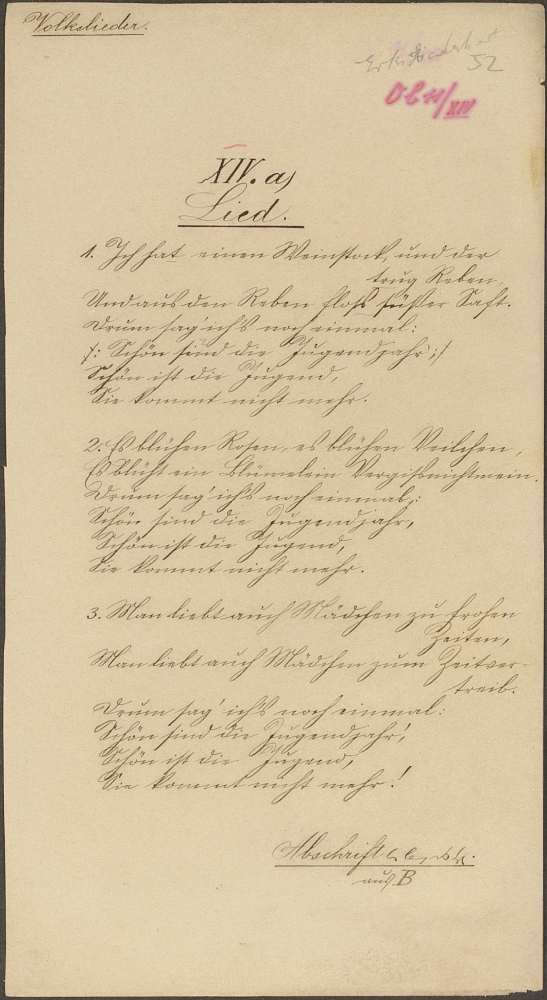 Volkslieder.
52
XIV. a)
Lied.
1. Ich hat einen Weinstock, und der
trug Reben,
Und aus den Reben floß süßer Saft.
Drum sag' ich's noch einmal:
/: Schön sind die Jugendjahr', :/
Schön ist die Jugend,
Sie kommt nicht mehr.
2. Es blühen Rosen, es blühen Veilchen,
Es blüht ein Blümelein Vergißnichtmein.
Drum sag' ich's noch einmal:
Schön sind die Jugendjahr,
Schön ist die Jugend,
Sie kommt nicht mehr.
3. Man liebt auch Mädchen zu frohen
Zeiten,
Man liebt auch Mädchen zum Zeitver-
treib.
Drum sag' ich's noch einmal:
Schön sind die Jugendjahr',
Schön ist die Jugend,
Sie kommt nicht mehr!
Abschrift
aus B